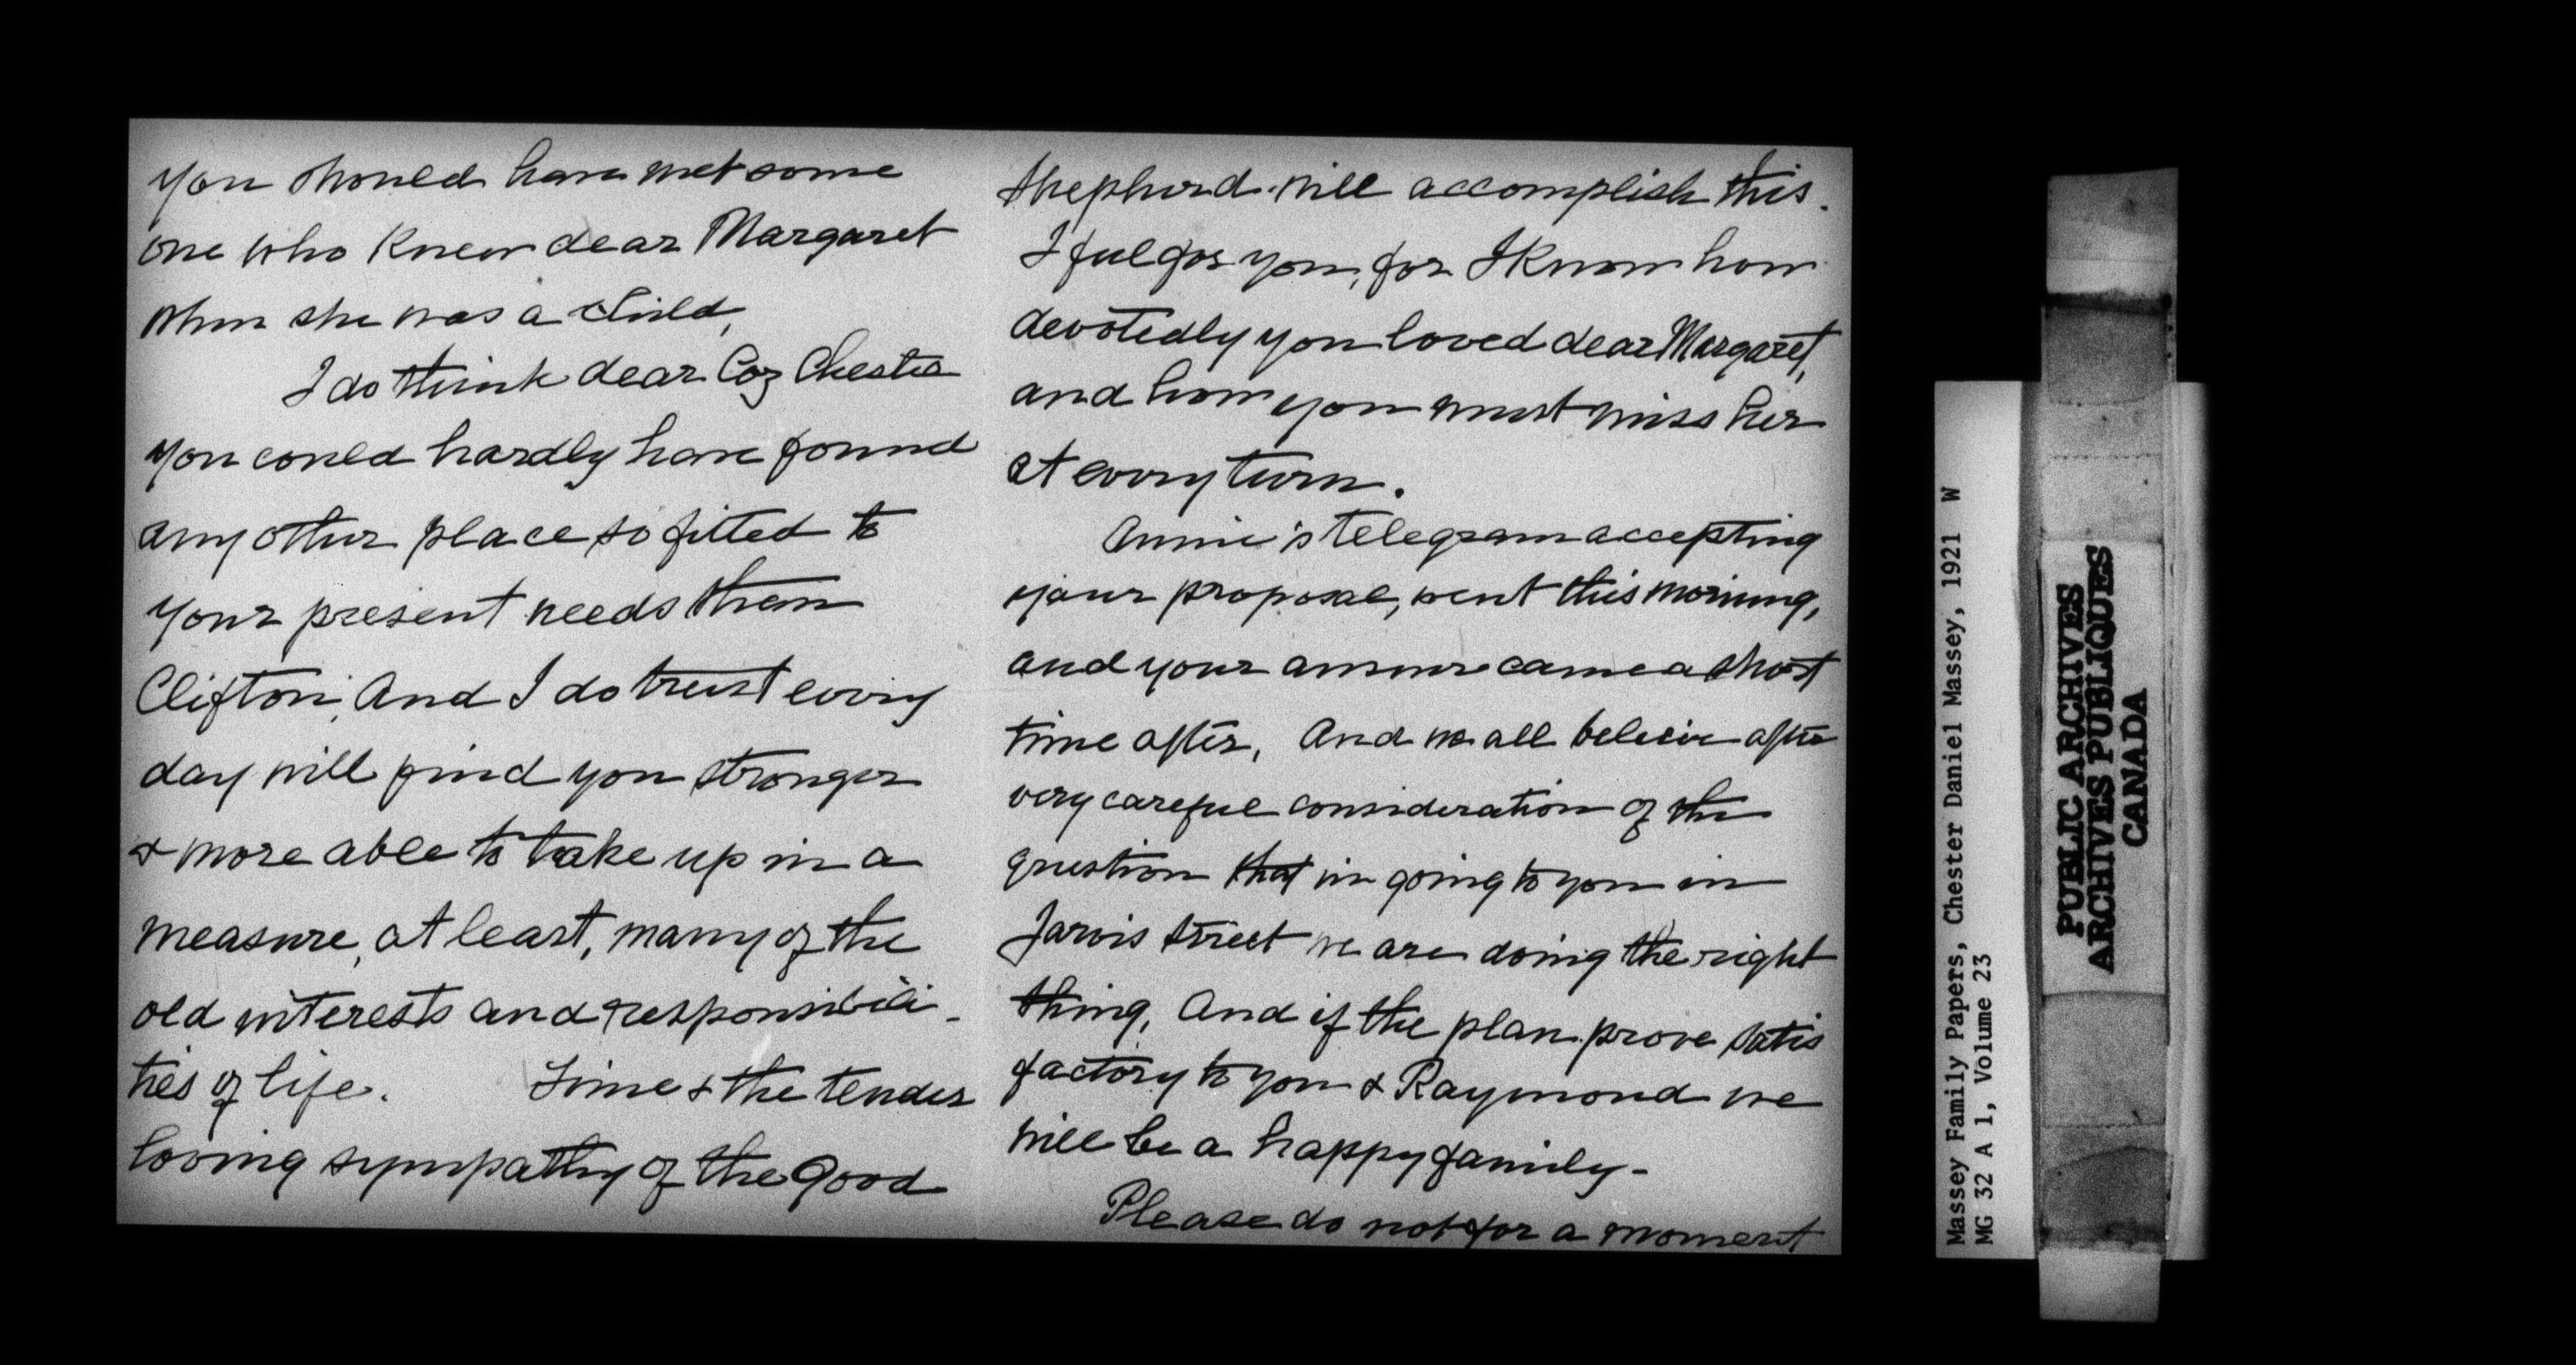 you should have met some
one who knew dear Margaret
when she was a child,
I do think dear Coz Chester
you could hardly have found
any other place so fitted to
your present needs than
Clifton, And I do trust every
day will find you stronger
& more able to take up in a
measure, at least, many of the
old interests and responsibili-
ties of life. Time & the tender
loving sympathy of the Good
Shepherd will accomplish this.
I feel for you, for I know how
devotedly you loved dear Margaret,
and how you must miss her
at every turn.
Annie's telegram accepting
your proposal, went this morning,
and your answer came a short
time after, And we all believe after
very careful consideration of the
question that in going to you in
Jarvis street we are doing the right
thing, And if the plan prove satis
factory to you & Raymond we
will be a happy family-
Please do not for a moment
Massey Family Papers, Chester Daniel Massey, 1921 W
MG 32 A 1, Volume 23
PUBLIC ARCHIVES
ARCHIVES PUBLIQUES
CANADA